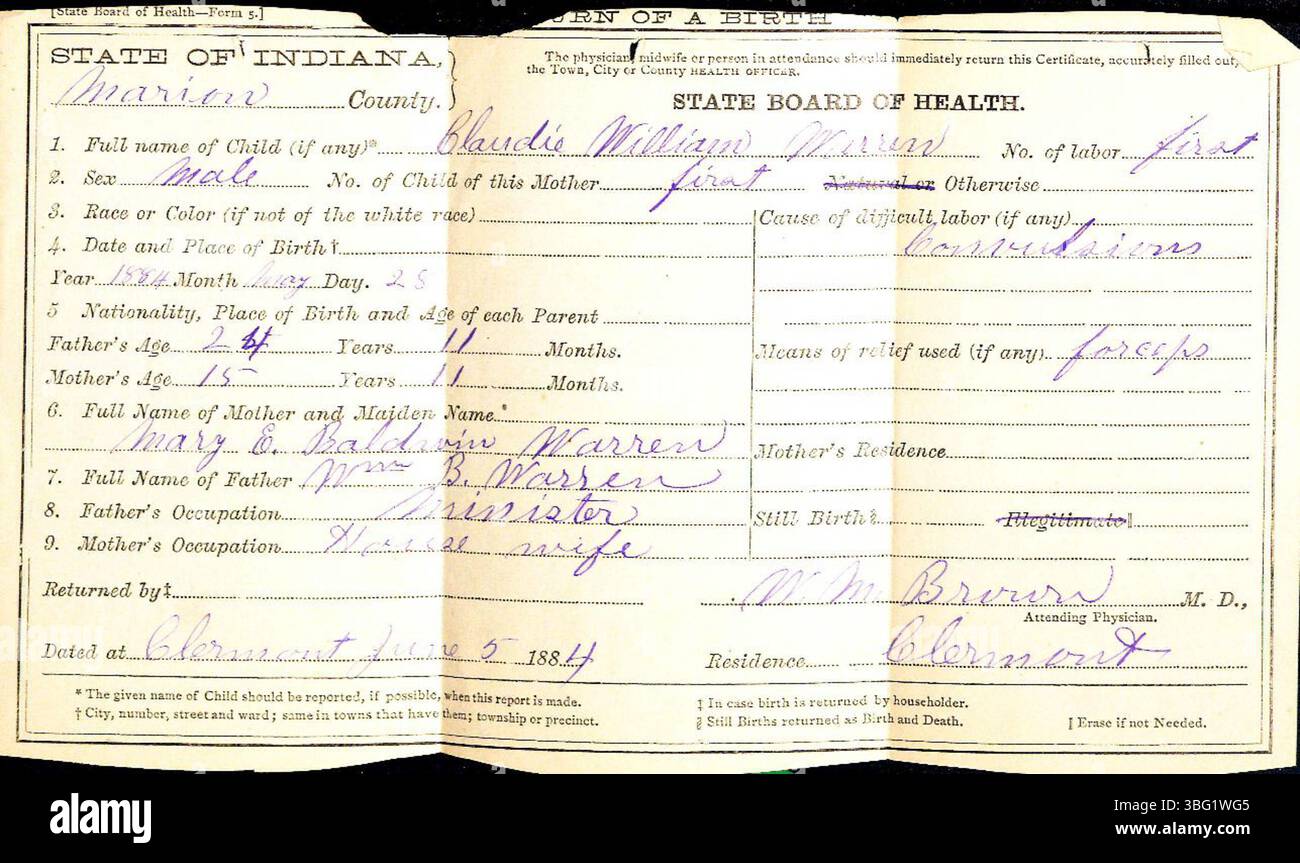 [State Board of Health—Form 5.]
URN OF A BIRTH
STATE OF INDIANA,
Marion County.
The physician, midwife or person in attendance should immediately return this Certificate, accurately filled out,
the Town, City or County HEALTH OFFICER.
STATE BOARD OF HEALTH.
1. Full name of Child (if any)* Claudie William Warren No. of labor first
2. Sex Male No. of Child of this Mother first Natural or Otherwise
3. Race or Color (if not of the white race)
4. Date and Place of Birth†
Year 1884 Month May Day. 28
5 Nationality, Place of Birth and Age of each Parent
Father's Age 24 Years 11 Months.
Mother's Age 15 Years 11 Months.
6. Full Name of Mother and Maiden Name*
Mary E. Baldwin Warren
7. Full Name of Father Wm B. Warren
8. Father's Occupation Minister
9. Mother's Occupation House wife
Cause of difficult labor (if any)
Convulsions
Means of relief used (if any) forceps
Mother's Residence
Still Birth§ Illegitimate‖
Returned by‡ W. M. Brown M. D.,
Attending Physician.
Dated at Clermont June 5 1884 Residence Clermont
* The given name of Child should be reported, if possible, when this report is made.
† City, number, street and ward; same in towns that have them; township or precinct.
‡ In case birth is returned by householder.
§ Still Births returned as Birth and Death.
‖ Erase if not Needed.
alamy
Image ID: 3BG1WG5
www.alamy.com